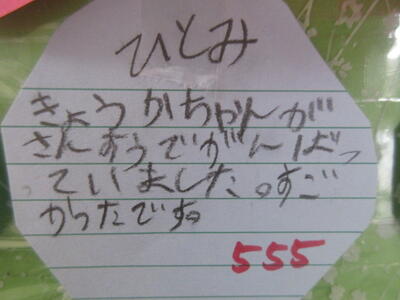 ひとみ
きょうかちゃんが
さんすうでがんばっ
っていました。すご
かったです。
555